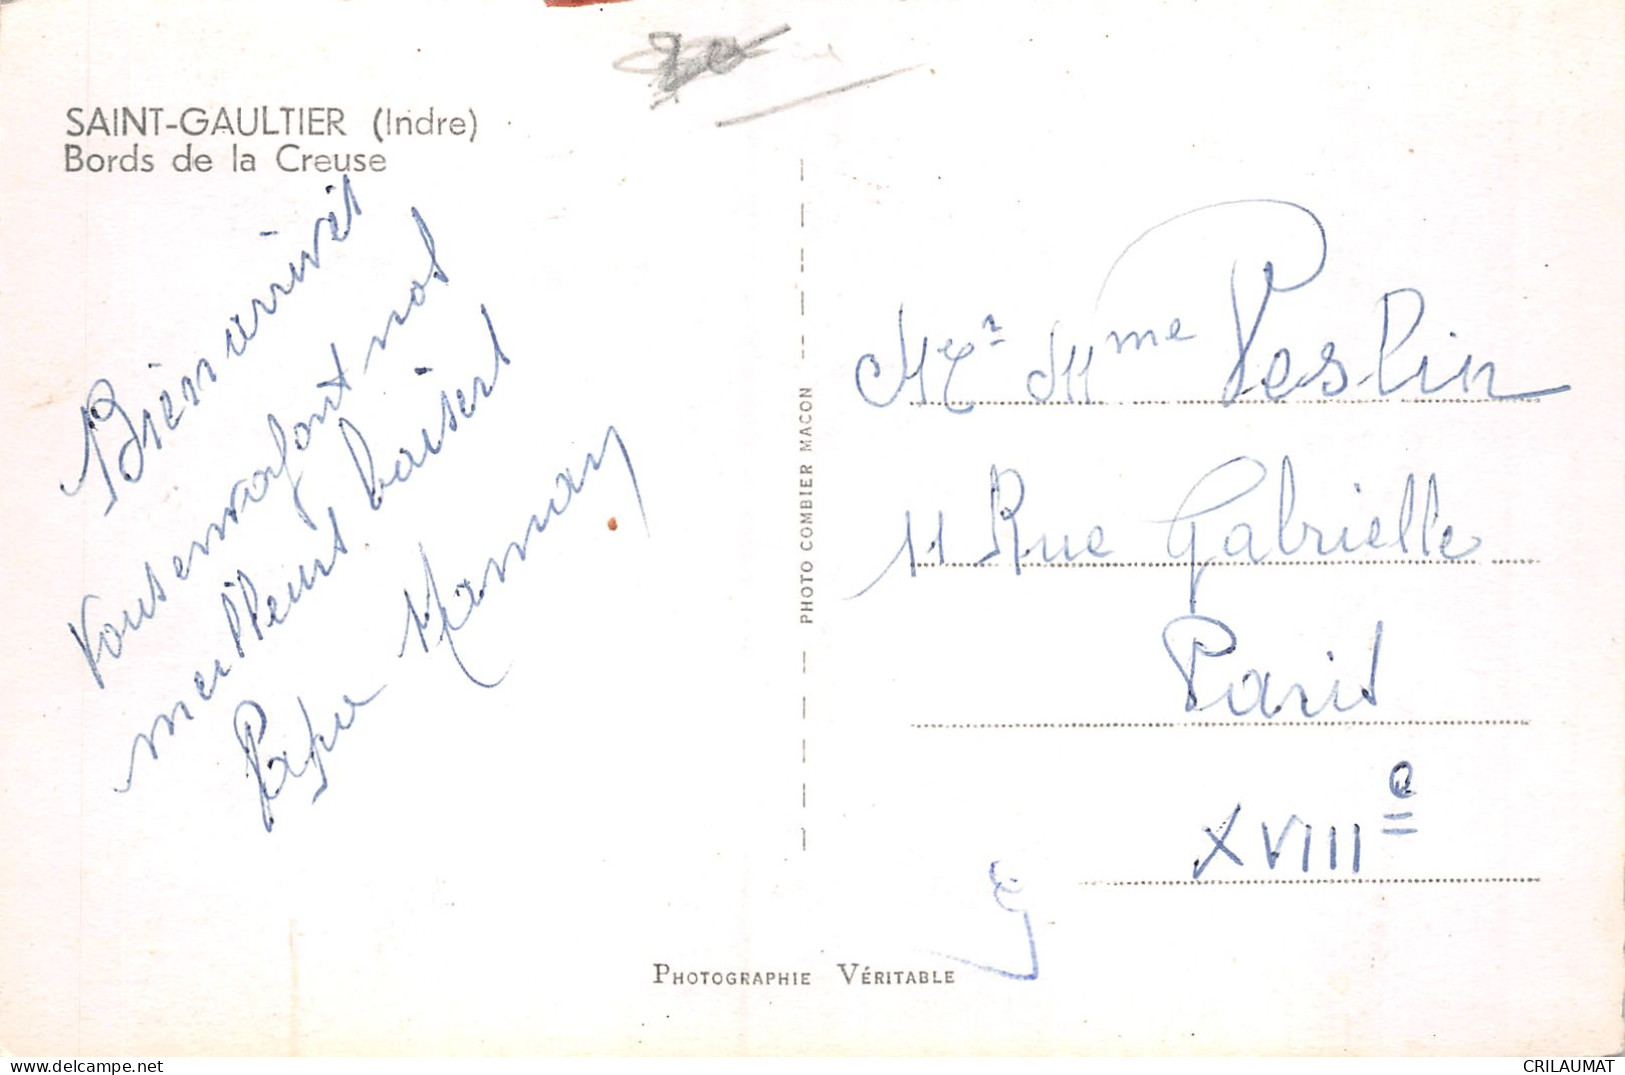 20
SAINT-GAULTIER (Indre)
Bords de la Creuse
Bien arrivés
Vous envoyons nos
meilleurs baisers
Papa Maman
PHOTO COMBIER MACON
Mr Mme Peslin
11 Rue Gabrielle
Paris
XVIIIe
PHOTOGRAPHIE VÉRITABLE
CRILAUMAT